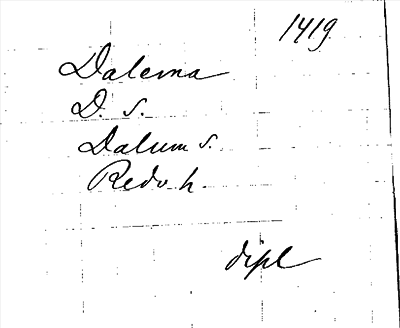 1419
Dalema
D. s.
Dalum s.
Redv. h.
dipl